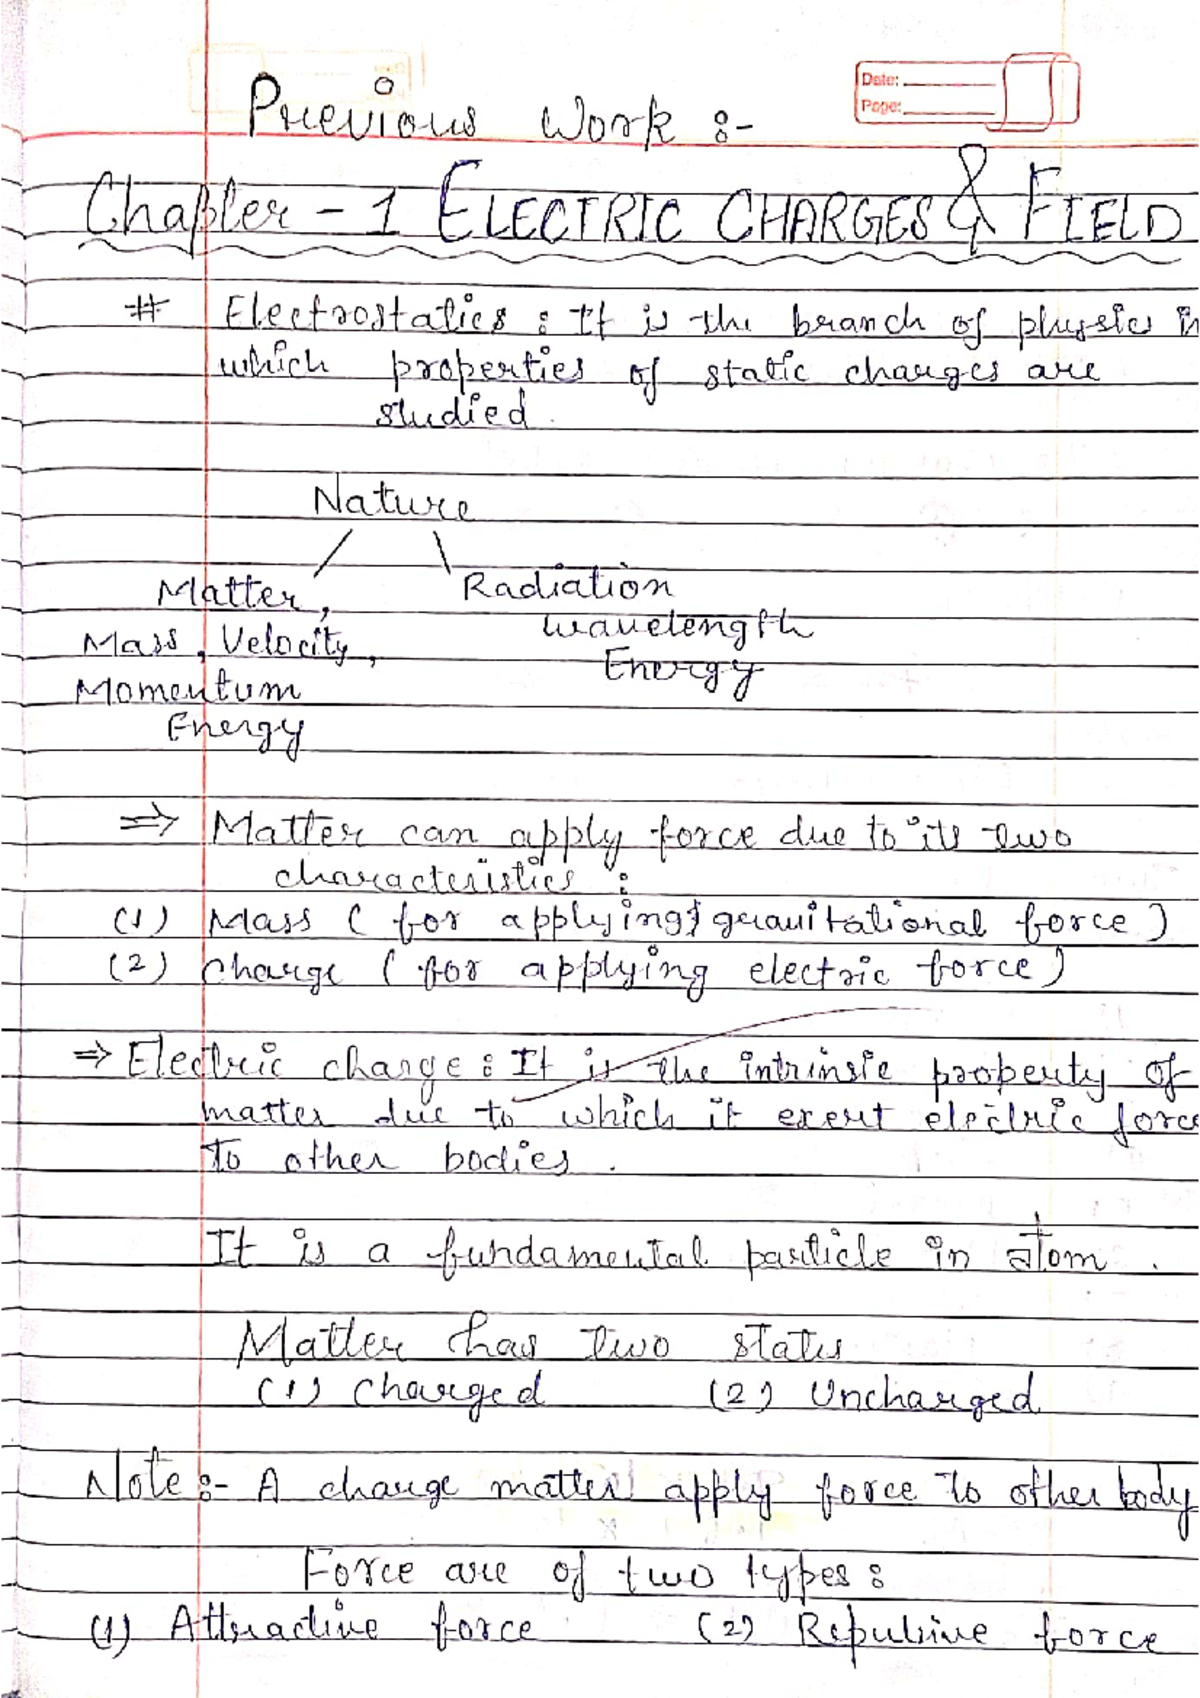 Date:
Page:
Previous Work :-
Chapter - 1 ELECTRIC CHARGES & FIELD
# Electrostatics : It is the branch of physics in
which properties of static charges are
studied.
Nature
Matter, Radiation
wavelength
Mass, Velocity,
Energy
Momentum
Energy
⇒ Matter can apply force due to its two
characteristics :
(1) Mass ( for applying gravitational force )
(2) charge ( for applying electric force )
⇒ Electric charge : It is the intrinsic property of
matter due to which it exert electric force
To other bodies .
It is a fundamental particle in atom .
Matter has two states
(1) Charged (2) Uncharged
Note :- A charge matter apply force to other body
Force are of two types :
(1) Attractive force (2) Repulsive force